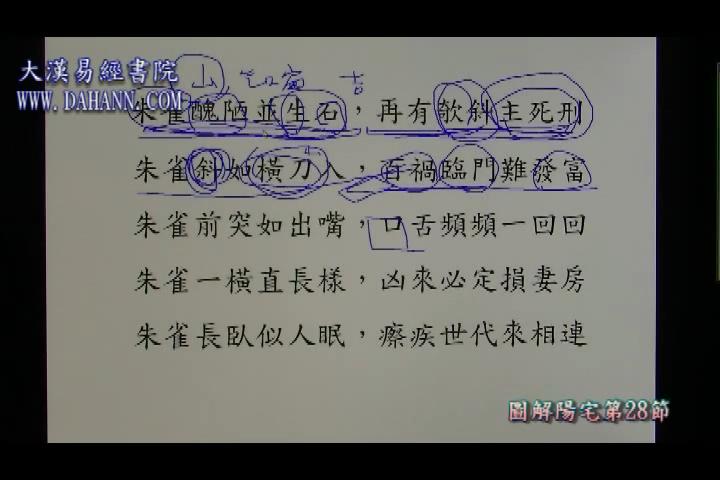 大漢易經書院
WWW.DAHANN.COM
山 吉
朱雀醜陋並生石，再有欹斜主死刑
朱雀斜如橫刀入，百禍臨門難發富
朱雀前突如出嘴，口舌頻頻一回回
朱雀一橫直長樣，凶來必定損妻房
朱雀長臥似人眠，瘵疾世代來相連
圖解陽宅第28節